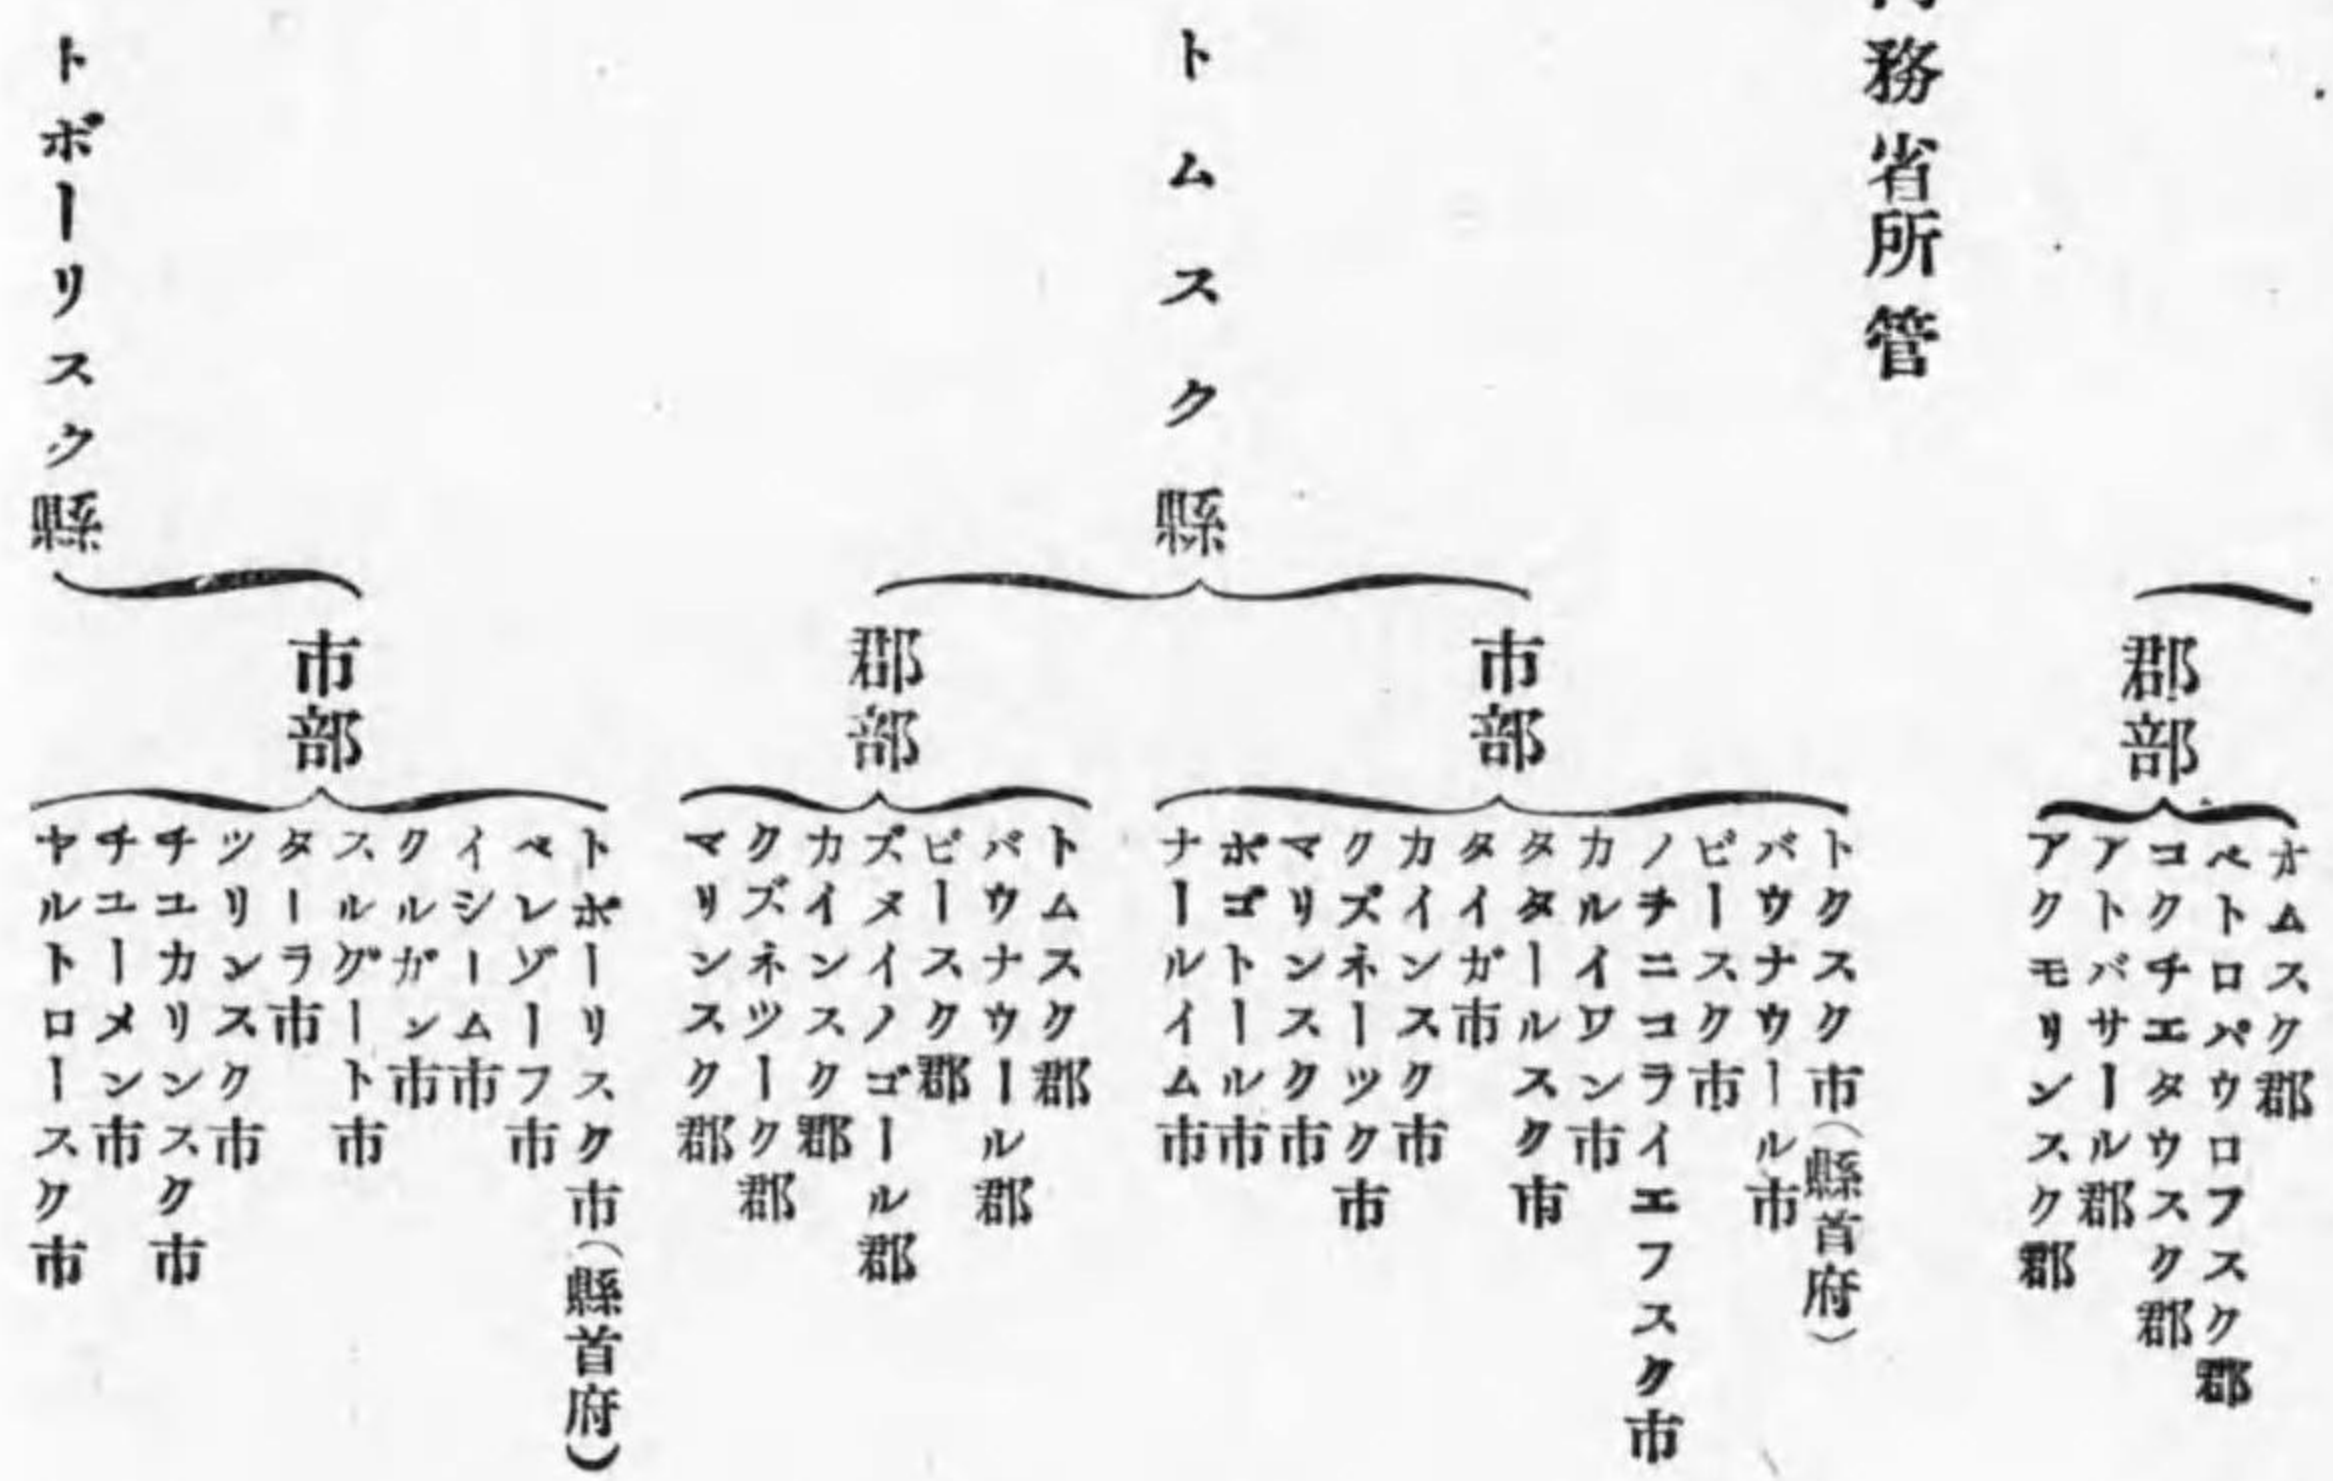 郡部
オムスク郡
ペトロパウロフスク郡
コクチエタウスク郡
アトバサール郡
アクモリンスク郡
務省所管
トムスク縣
市部
トクスク市(縣首府)
バウナウール市
ビースク市
ノチニコライエフスク市
カルイワン市
タタールスク市
タイガ市
カインスク市
クズネーツク市
マリンスク市
ボゴトール市
ナールイム市
郡部
トムスク郡
バウナウール郡
ビースク郡
ズメイノゴール郡
カインスク郡
クズネツーク郡
マリンスク郡
トボーリスク縣
市部
トボーリスク市(縣首府)
ベレゾーフ市
イシーム市
クルガン市
スルグート市
ターラ市
ツリンスク市
チユカリンスク市
チユーメン市
ヤルトロースク市